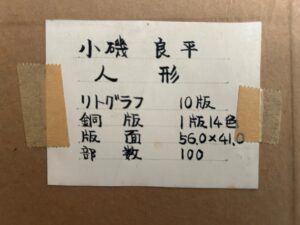 小磯 良平
人 形
リトグラフ 10版
銅 版 1版14色
版 面 56.0×41.0
部 数 100